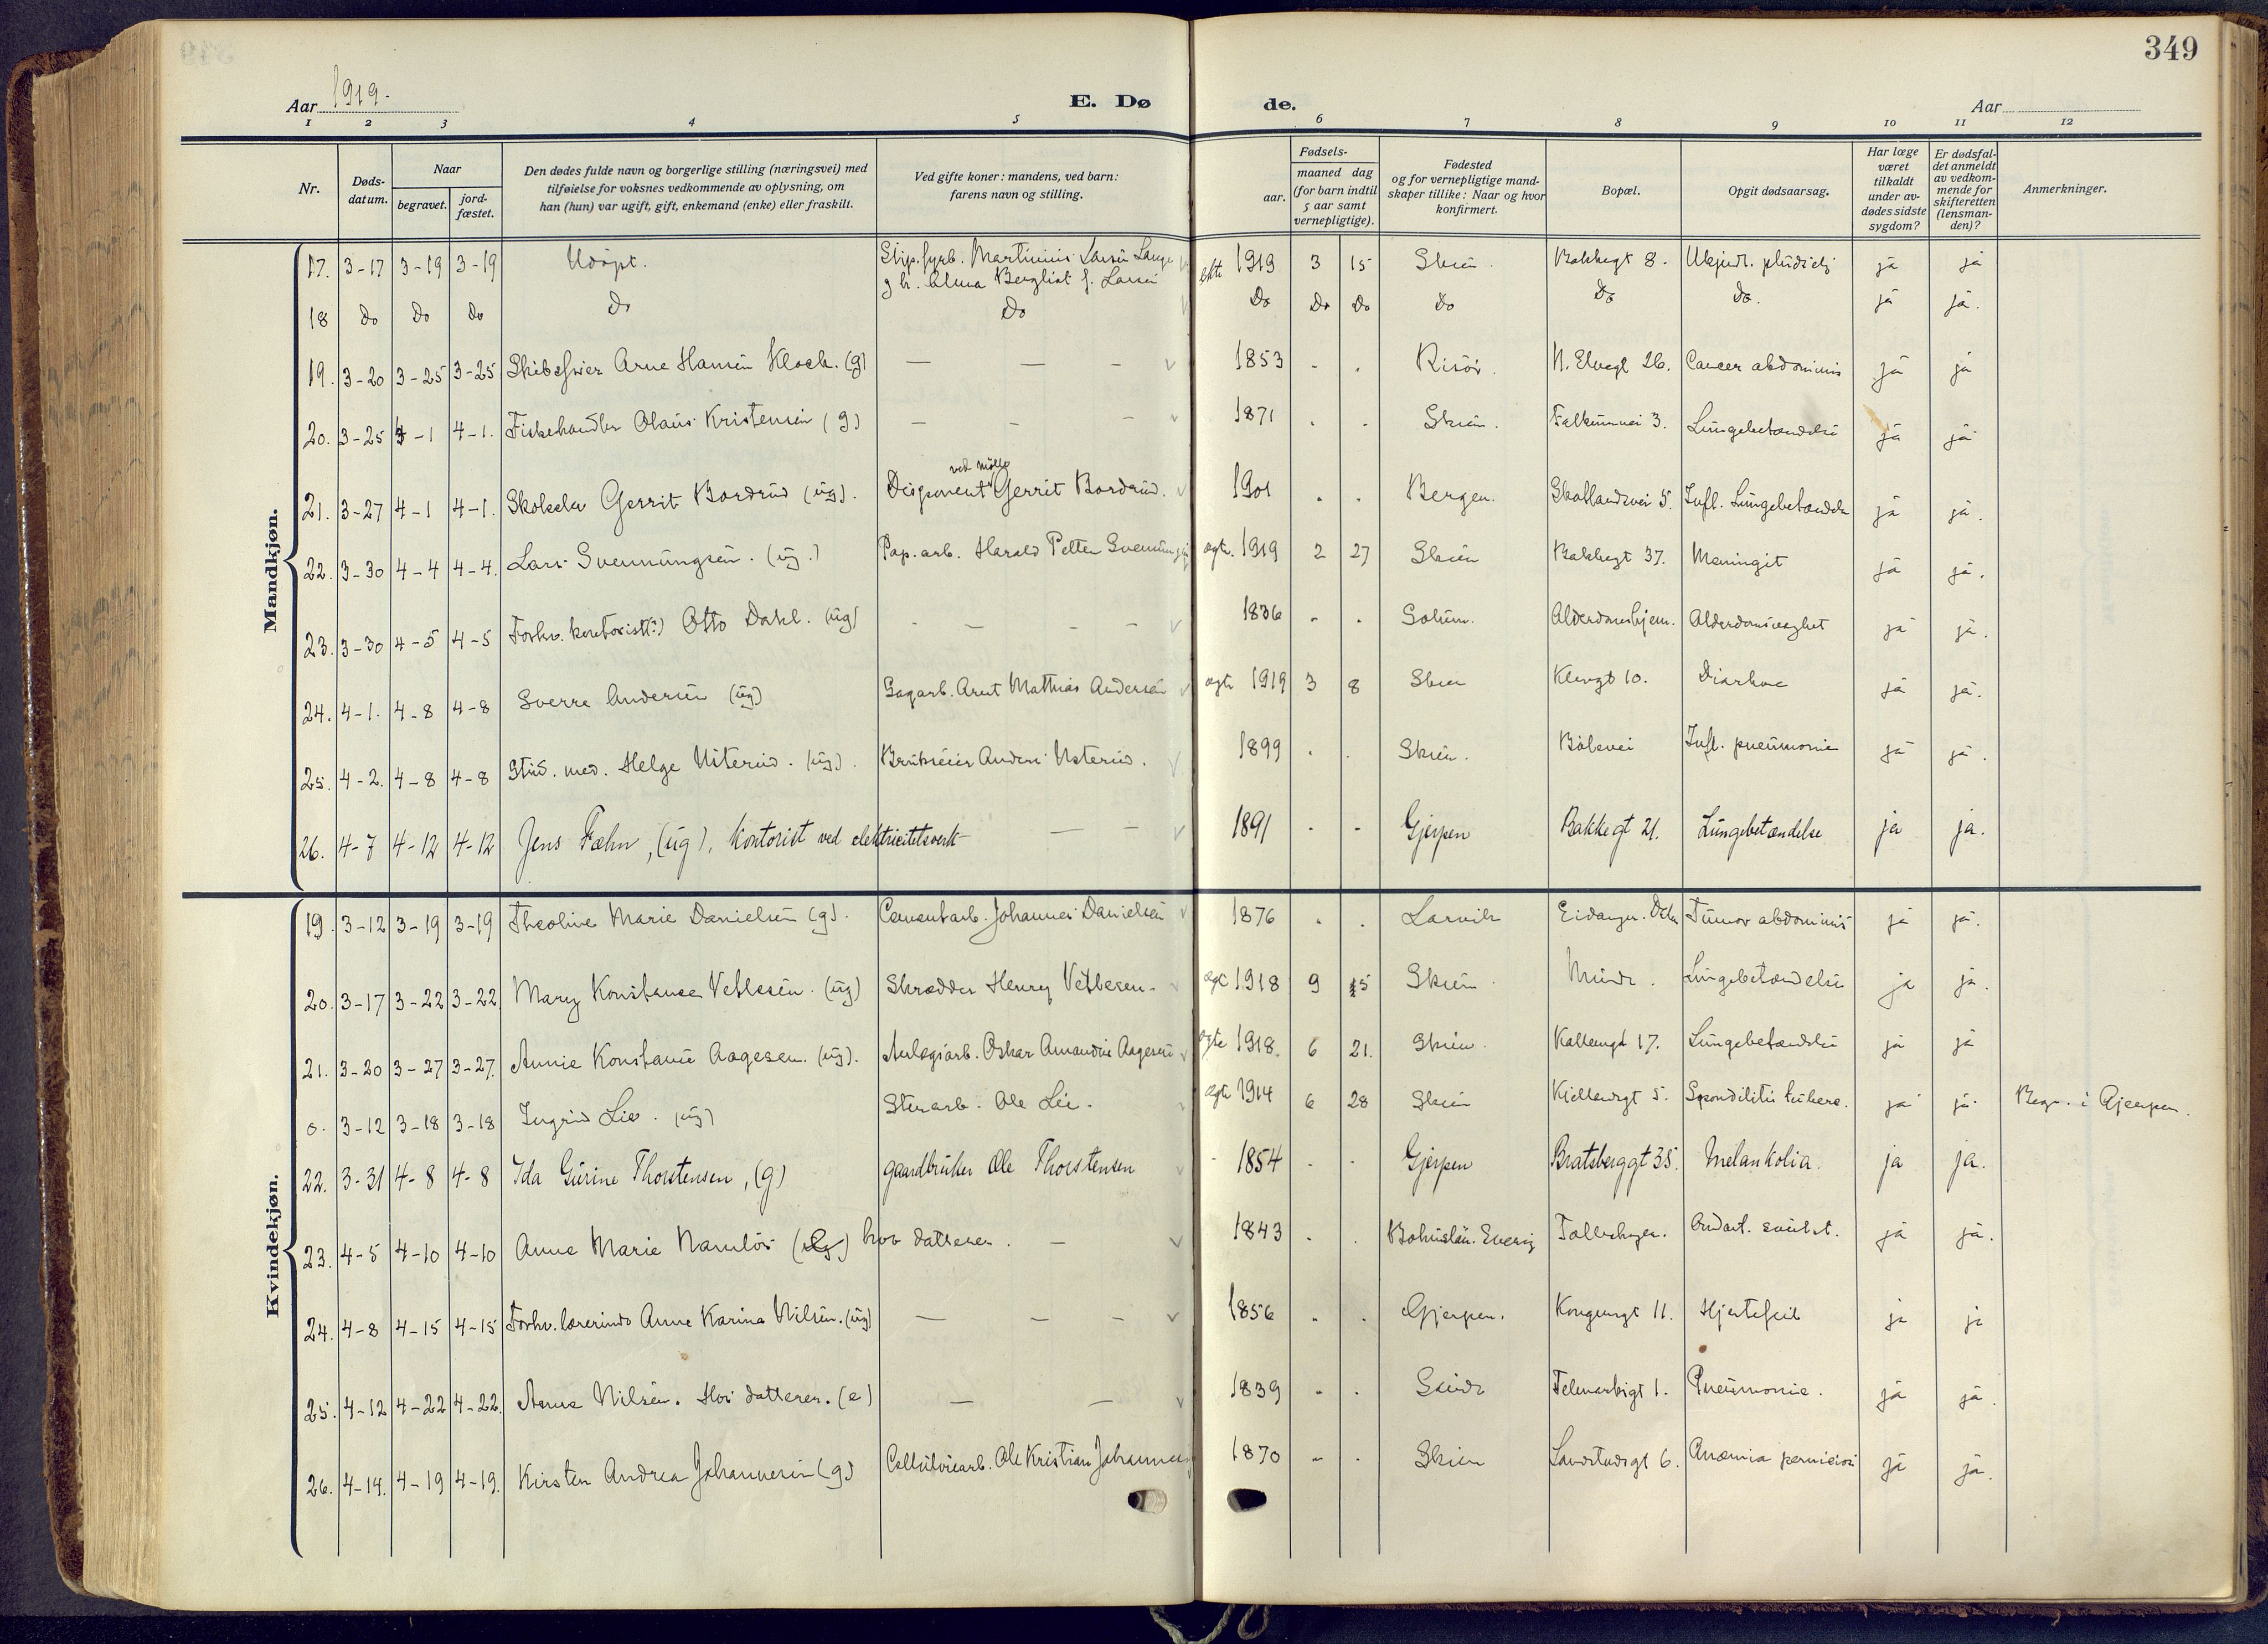 349
Aar 1919.
E. Dø
de.
Aar
1 2 3 4 5 6 7 8 9 10 11 12
Nr.
Døds-
datum.
Naar
begravet.
jord-
fæstet.
Den dødes fulde navn og borgerlige stilling (næringsvei) med
tilføielse for voksnes vedkommende av oplysning, om
han (hun) var ugift, gift, enkemand (enke) eller fraskilt.
Ved gifte koner: mandens, ved barn:
farens navn og stilling.
Fødsels-
aar.
maaned dag
(for barn indtil
5 aar samt
vernepligtige).
Fødested
og for vernepligtige mand-
skaper tillike: Naar og hvor
konfirmert.
Bopæl.
Opgit dødsaarsag.
Har læge
været
tilkaldt
under av-
dødes sidste
sygdom?
Er dødsfal-
det anmeldt
av vedkom-
mende for
skifteretten
(lensman-
den)?
Anmerkninger.
Mandkjøn.
17. 3-17 3-19 3-19 Udøpt. Martinius Larsen Lange ekte 1919 3 15 Skien. Bakkegt 8. Ukjendt. pludselig ja ja
Alma Bergliot f. Larsen
18 Do Do Do Do Do Do Do Do Do Do Do. ja ja.
19. 3-20 3-25 3-25 Skibsfører Arne Hansen Kloch. (g) — — - 1853 - . Risør. N. Elvegt 26. Cancer abdominis ja ja
20. 3-25 4-1 4-1. Fiskehandler Olaus Kristensen (g) — - - 1871 . . Skien. Falkumvei 3. Lungebetændelse ja ja
ved mølle
21. 3-27 4-1 4-1. Skoleelev Gerrit Bordrud (ug). Disponent Gerrit Bordrud. 1901 . . Bergen. Skotlandsvei 5. Infl. Lungebetændelse ja ja.
22. 3-30 4-4 4-4. Lars Svennungsen. (ug.) Pap.arb. Harald Petter Svennungsen ægte. 1919 2 27 Skien Bakkegt 37. Meningit ja ja.
23. 3-30 4-5 4-5 Forhv. kontorist(?) Otto Dahl. (ug) - - - - 1836 - . Solum. Alderdomshjem. Alderdomssvaghet ja ja.
24. 4-1. 4-8 4-8 Sverre Andersen (ug) Sagarb. Arnt Mathias Andersen ægte 1919 3 8 Skien Klevgt 10. Diarhoe ja ja.
25. 4-2. 4-8 4-8 Stud. med. Helge Usterud. (ug). Brukseier Anders Usterud. 1899 . . Skien. Bølevei Infl. pneumonie ja ja.
26. 4-7 4-12 4-12 Jens Fæhn, (ug), kontorist ved elektricitetsverk — - 1891 - - Gjerpen Bakkegt 21. Lungebetændelse ja ja.
Kvindekjøn.
19. 3-12 3-19 3-19 Theoline Marie Danielsen (g). Cementarb. Johannes Danielsen 1876 . . Larvik Eidanger. Tumor abdominis ja ja.
20. 3-17 3-22 3-22 Mary Konstanse Vetlesen. (ug) Skrædder Henry Vetlesen. ægte 1918 9 15 Skien. Lungebetændelse ja ja.
21. 3-20 3-27 3-27. Annie Konstance Aagesen. (ug). Anlegsarb. Oskar Amandus Aagesen ægte 1918. 6 21. Skien. 17. Lungebetændelse ja ja
0. 3-12 3-18 3-18 Ingrid Lie. (ug) Ole Lie. ægte 1914 6 28 Skien 5. Spondilitis tuberc. ja ja. Begr. i Gjerpen.
22. 3-31 4-8 4-8 Ida Gurine Thorstensen, (g) gaardbruker Ole Thorstensen - 1854 - - Gjerpen Bratsberggt 35. Melankolia. ja ja.
23. 4-5 4-10 4-10 Anne Marie Namløs hos datteren. — 1843 . . Bohuslän. Sverig Follehagen. ja ja.
24. 4-8 4-15 4-15 Forhv. lærerinde Anne Karina Nilsen. (ug) — - - 1856 . . Gjerpen. Kongensgt 11. Hjertefeil ja ja
25. 4-12 4-22 4-22. Anna Nilsen. Hos datteren. (e) — — 1839 - . Telemarksgt 1. Pneumonie. ja ja.
26. 4-14. 4-19 4-19. Kirsten Andrea Johannesen (g) Cellulosearb. Ole Kristian Johannesen 1870 - . Skien Landstadsgt 6. Anæmia perniciosa ja ja.